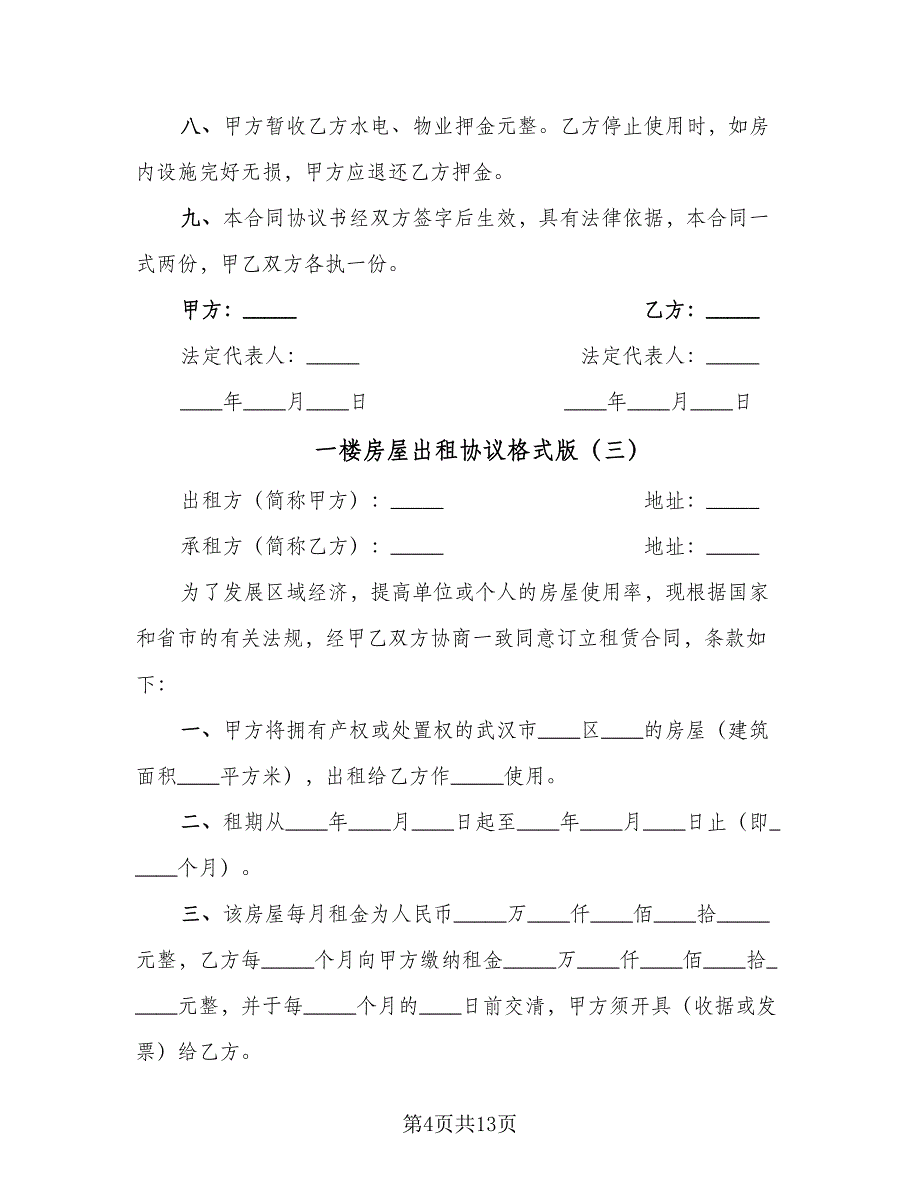 八、甲方暂收乙方水电、物业押金元整。乙方停止使用时，如房
内设施完好无损，甲方应退还乙方押金。
九、本合同协议书经双方签字后生效，具有法律依据，本合同一
式两份，甲乙双方各执一份。
甲方：_____ 乙方：_____
法定代表人：_____ 法定代表人：_____
____年____月____日 ____年____月____日
一楼房屋出租协议格式版（三）
出租方（简称甲方）：_____ 地址：_____
承租方（简称乙方）：_____ 地址：_____
为了发展区域经济，提高单位或个人的房屋使用率，现根据国家
和省市的有关法规，经甲乙双方协商一致同意订立租赁合同，条款如
下：
一、甲方将拥有产权或处置权的武汉市____区____的房屋（建筑
面积____平方米），出租给乙方作_____使用。
二、租期从____年____月____日起至____年____月____日止（即_
____个月）。
三、该房屋每月租金为人民币_____万____仟____佰____拾_____
元整，乙方每_____个月向甲方缴纳租金_____万____仟____佰____拾_
____元整，并于每_____个月的____日前交清，甲方须开具（收据或发
票）给乙方。
第4页共13页